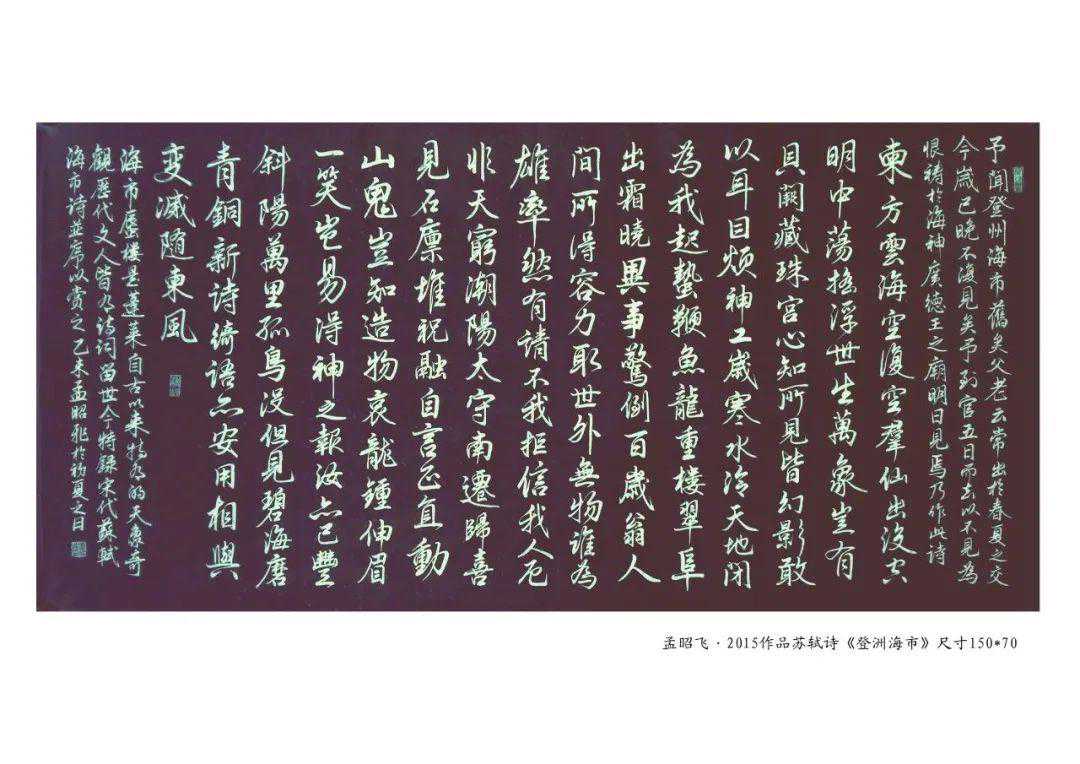 予聞登州海市舊矣父老云常出於春夏之交
今歲已晚不復見矣予到官五日而去以不見為
恨禱於海神廣德王之廟明日見焉乃作此詩
東方雲海空復空羣仙出沒空
明中蕩搖浮世生萬象豈有
貝闕藏珠宫心知所見皆幻影敢
以耳目煩神工歲寒水冷天地閉
為我起蟄鞭魚龍重樓翠阜
出霜曉異事驚倒百歲翁人
間所得容力取世外無物誰為
雄率然有請不我拒信我人厄
非天窮潮陽太守南遷歸喜
見石廩堆祝融自言正直動
山鬼豈知造物哀龍鍾伸眉
一笑豈易得神之報汝亦已豐
斜陽萬里孤鳥没但見碧海磨
青銅新詩綺語亦安用相與
变滅随東風
海市蜃楼是蓬莱自古以来特有的天象奇
觀歷代文人皆有詩詞留世今特録宋代蘇軾
海市詩並席以賞之乙未孟昭飛於初夏之日
孟昭飞·2015作品苏轼诗《登洲海市》尺寸150*70